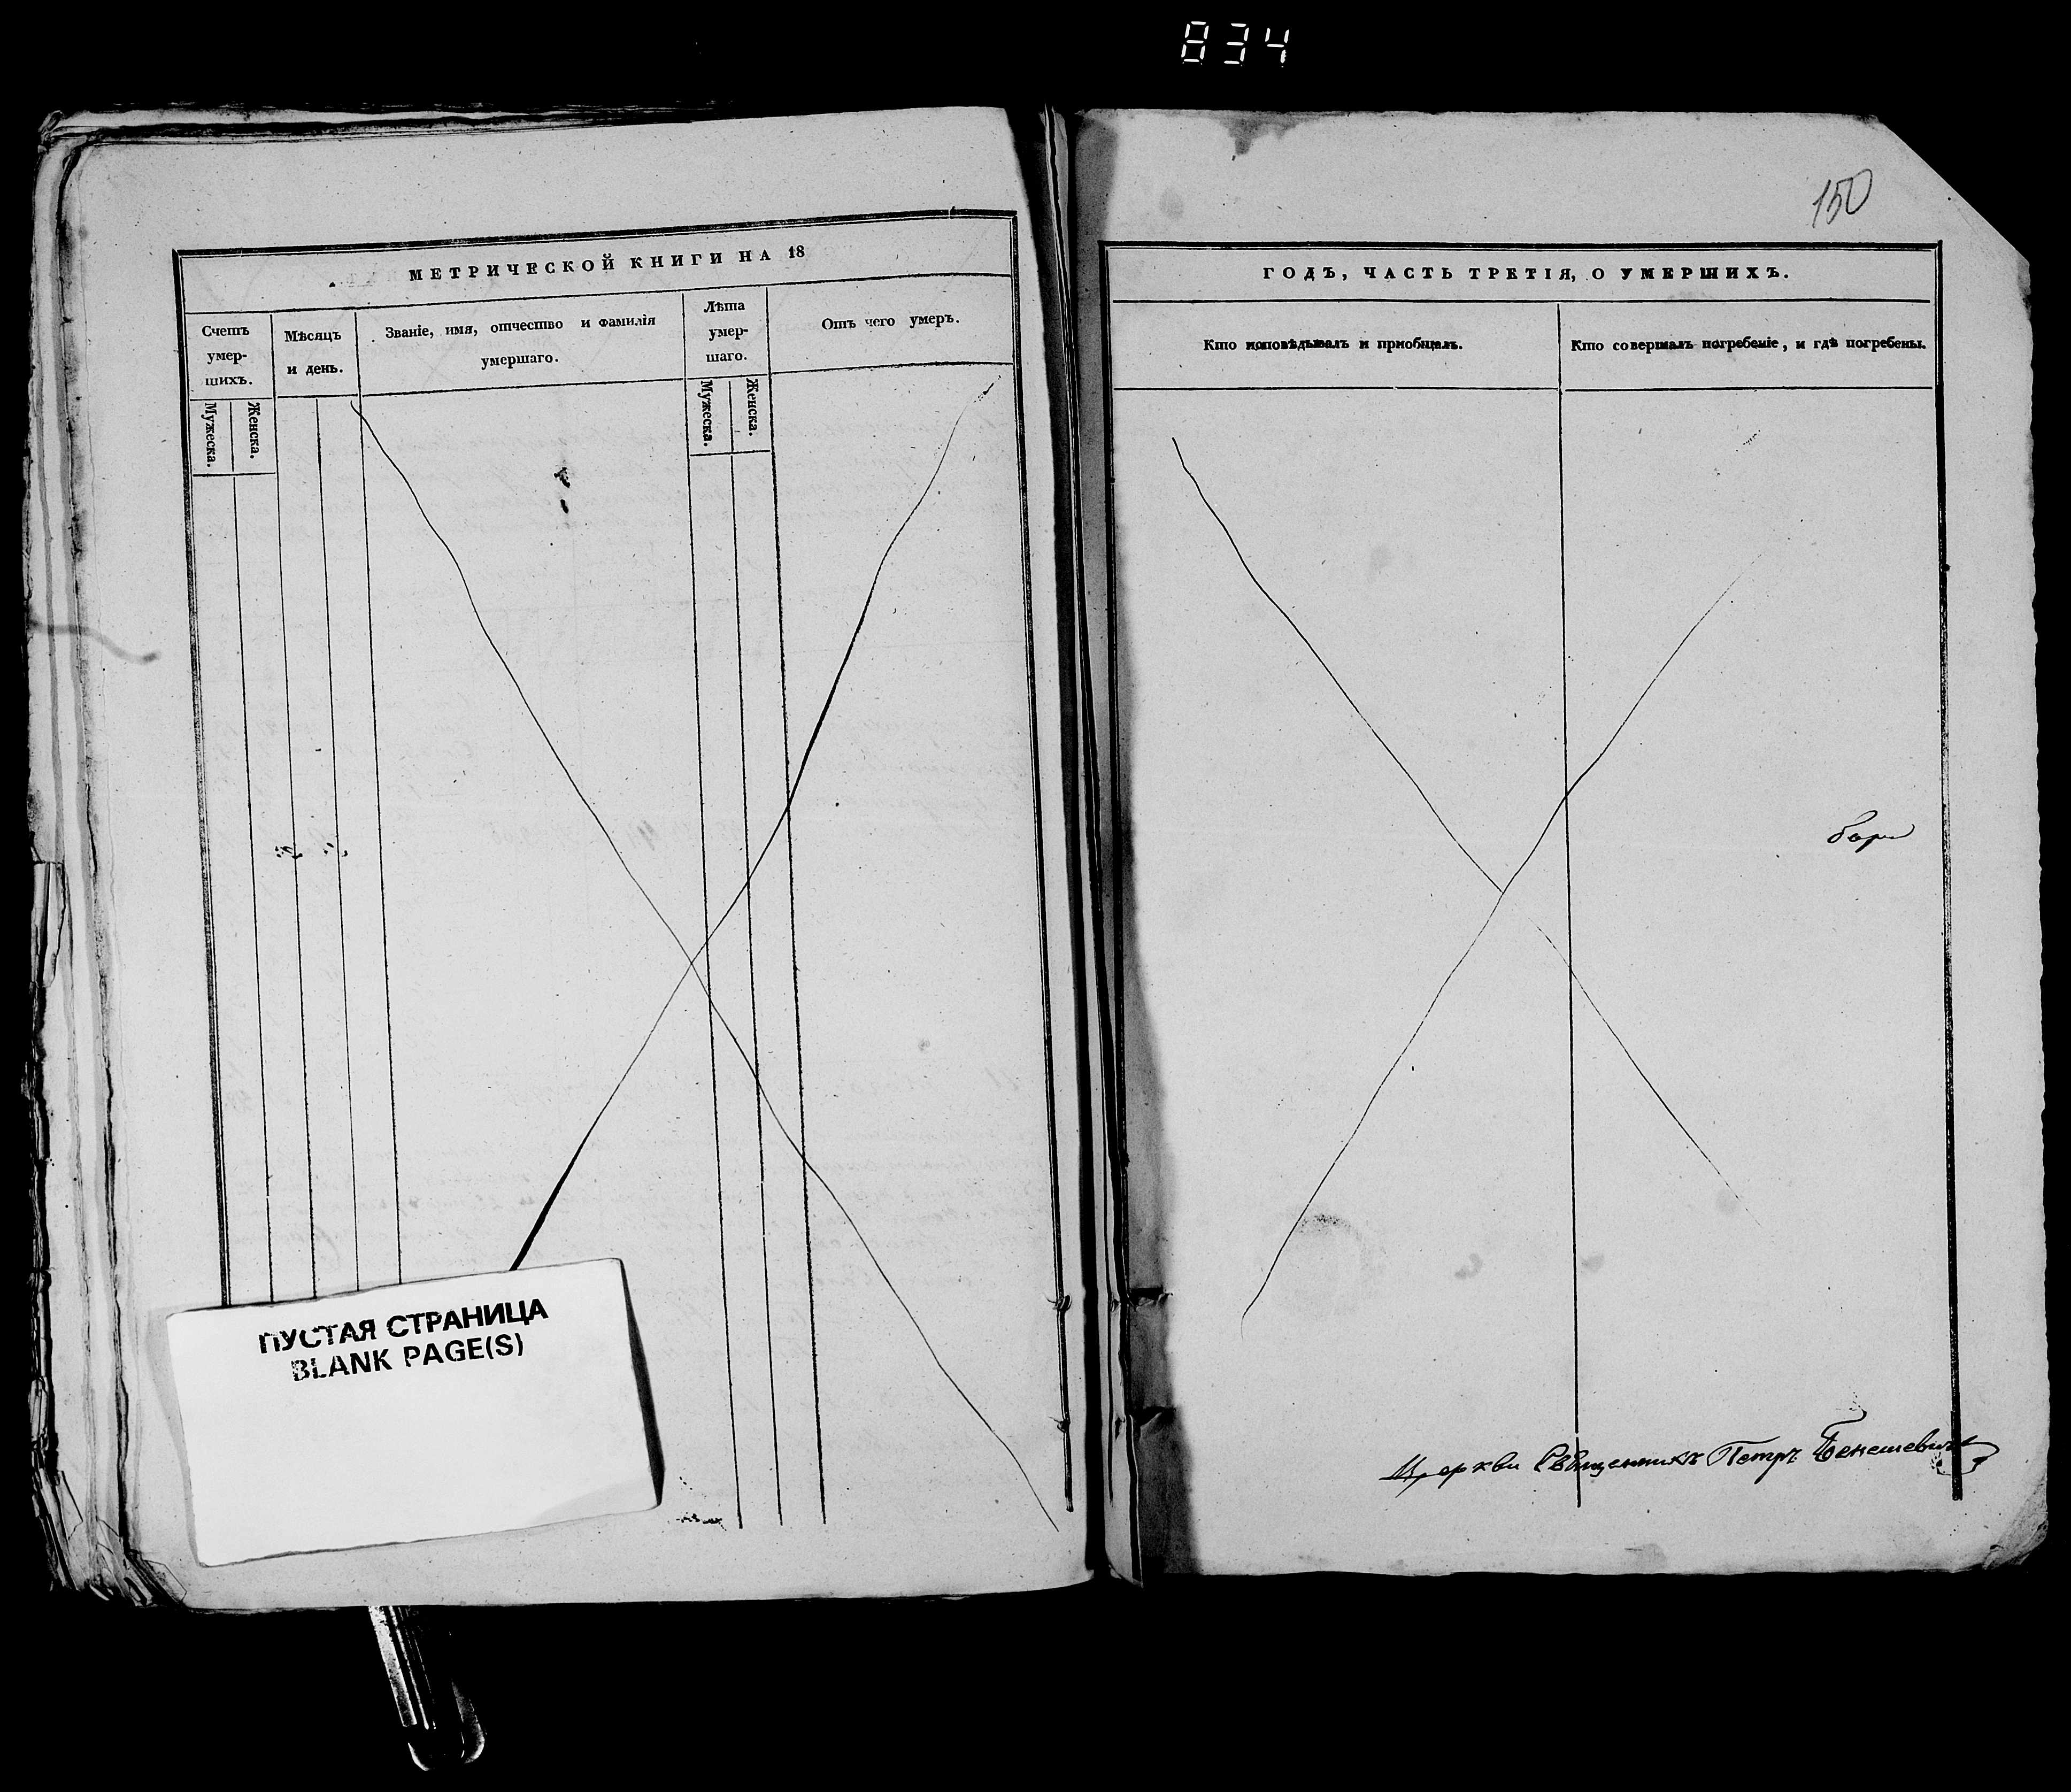 834
150
МЕТРИЧЕСКОЙ КНИГИ НА 18
Счетъ умершихъ.
Мужеска.
Женска.
Мѣсяцъ и день.
Званіе, имя, отчество и фамилія
умершаго.
Лѣта
умер-
шаго.
Мужеска.
Женска.
Отъ чего умеръ.
ГОДЪ, ЧАСТЬ ТРЕТІЯ, О УМЕРШИХЪ.
Кто исповѣдывалъ и приобщалъ.
Кто совершалъ погребеніе, и гдѣ погребены.
Церкви Священникъ Петръ Бенешевичъ
ПУСТАЯ СТРАНИЦА
BLANK PAGE(S)